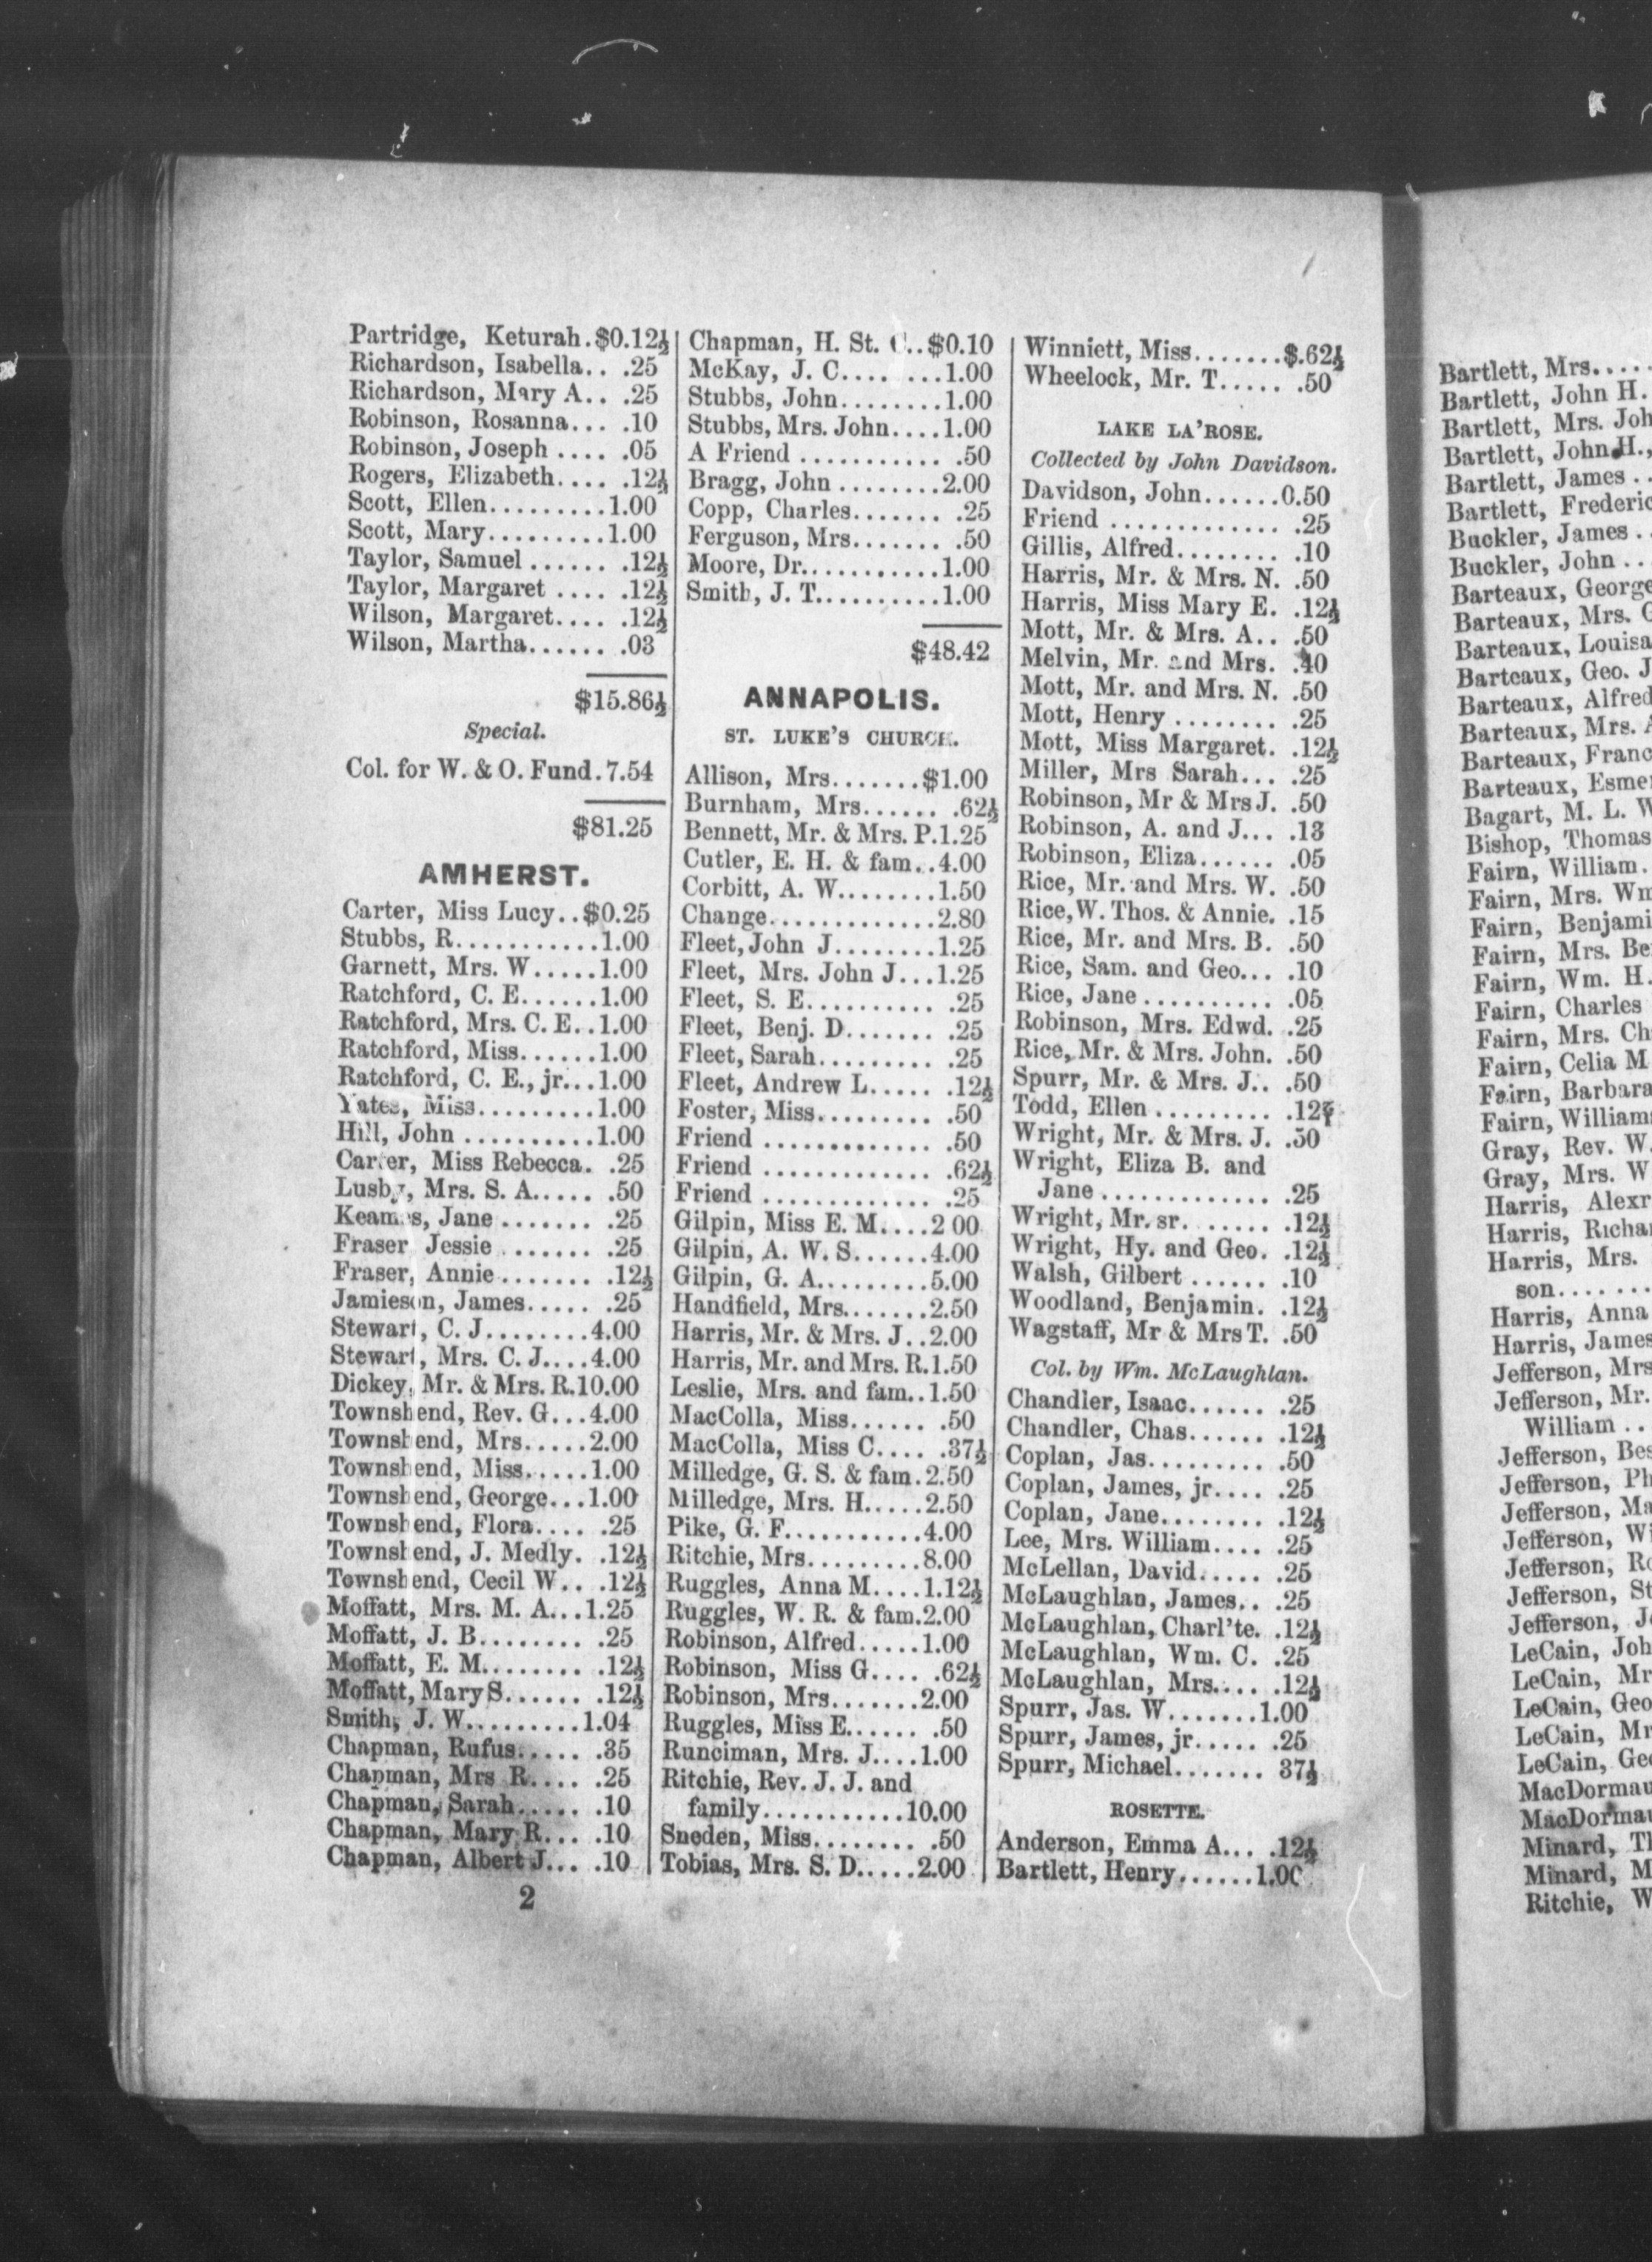 Partridge, Keturah.$0.12½
Richardson, Isabella.. .25
Richardson, Mary A.. .25
Robinson, Rosanna... .10
Robinson, Joseph .... .05
Rogers, Elizabeth.... .12½
Scott, Ellen.........1.00
Scott, Mary.........1.00
Taylor, Samuel ...... .12½
Taylor, Margaret .... .12½
Wilson, Margaret.... .12½
Wilson, Martha...... .03
$15.86½
Special.
Col. for W. & O. Fund.7.54
$81.25
AMHERST.
Carter, Miss Lucy..$0.25
Stubbs, R...........1.00
Garnett, Mrs. W.....1.00
Ratchford, C. E......1.00
Ratchford, Mrs. C. E..1.00
Ratchford, Miss......1.00
Ratchford, C. E., jr...1.00
Yates, Miss.........1.00
Hill, John ..........1.00
Carter, Miss Rebecca. .25
Lusby, Mrs. S. A..... .50
Keames, Jane ....... .25
Fraser Jessie ....... .25
Fraser, Annie....... .12½
Jamieson, James..... .25
Stewart, C. J........4.00
Stewart, Mrs. C. J....4.00
Dickey, Mr. & Mrs. R.10.00
Townshend, Rev. G...4.00
Townshend, Mrs.....2.00
Townshend, Miss.....1.00
Townshend, George...1.00
Townshend, Flora.... .25
Townshend, J. Medly. .12½
Townshend, Cecil W.. .12½
Moffatt, Mrs. M. A...1.25
Moffatt, J. B........ .25
Moffatt, E. M........ .12½
Moffatt, Mary S...... .12½
Smith, J. W.........1.04
Chapman, Rufus..... .35
Chapman, Mrs R.... .25
Chapman, Sarah..... .10
Chapman, Mary R... .10
Chapman, Albert J... .10
2
Chapman, H. St. C..$0.10
McKay, J. C........1.00
Stubbs, John........1.00
Stubbs, Mrs. John....1.00
A Friend ........... .50
Bragg, John ........2.00
Copp, Charles....... .25
Ferguson, Mrs....... .50
Moore, Dr...........1.00
Smith, J. T..........1.00
$48.42
ANNAPOLIS.
ST. LUKE'S CHURCH.
Allison, Mrs.......$1.00
Burnham, Mrs...... .62½
Bennett, Mr. & Mrs. P.1.25
Cutler, E. H. & fam..4.00
Corbitt, A. W........1.50
Change.............2.80
Fleet, John J........1.25
Fleet, Mrs. John J...1.25
Fleet, S. E.......... .25
Fleet, Benj. D....... .25
Fleet, Sarah.......... .25
Fleet, Andrew L..... .12½
Foster, Miss......... .50
Friend ............. .50
Friend ............. .62½
Friend ............. .25
Gilpin, Miss E. M....2 00
Gilpin, A. W. S......4.00
Gilpin, G. A.........5.00
Handfield, Mrs.......2.50
Harris, Mr. & Mrs. J..2.00
Harris, Mr. and Mrs. R.1.50
Leslie, Mrs. and fam..1.50
MacColla, Miss...... .50
MacColla, Miss C.... .37½
Milledge, G. S. & fam.2.50
Milledge, Mrs. H.....2.50
Pike, G. F...........4.00
Ritchie, Mrs.........8.00
Ruggles, Anna M....1.12½
Ruggles, W. R. & fam.2.00
Robinson, Alfred.....1.00
Robinson, Miss G.... .62½
Robinson, Mrs.......2.00
Ruggles, Miss E...... .50
Runciman, Mrs. J....1.00
Ritchie, Rev. J. J. and
family...........10.00
Sneden, Miss........ .50
Tobias, Mrs. S. D.....2.00
Winniett, Miss.......$.62½
Wheelock, Mr. T..... .50
LAKE LA'ROSE.
Collected by John Davidson.
Davidson, John......0.50
Friend ............. .25
Gillis, Alfred........ .10
Harris, Mr. & Mrs. N. .50
Harris, Miss Mary E. .12½
Mott, Mr. & Mrs. A.. .50
Melvin, Mr. and Mrs. .40
Mott, Mr. and Mrs. N. .50
Mott, Henry ........ .25
Mott, Miss Margaret. .12½
Miller, Mrs Sarah... .25
Robinson, Mr & Mrs J. .50
Robinson, A. and J... .13
Robinson, Eliza...... .05
Rice, Mr. and Mrs. W. .50
Rice, W. Thos. & Annie. .15
Rice, Mr. and Mrs. B. .50
Rice, Sam. and Geo... .10
Rice, Jane .......... .05
Robinson, Mrs. Edwd. .25
Rice, Mr. & Mrs. John. .50
Spurr, Mr. & Mrs. J.. .50
Todd, Ellen ......... .12½
Wright, Mr. & Mrs. J. .50
Wright, Eliza B. and
Jane ............. .25
Wright, Mr. sr. ...... .12½
Wright, Hy. and Geo. .12½
Walsh, Gilbert ...... .10
Woodland, Benjamin. .12½
Wagstaff, Mr & Mrs T. .50
Col. by Wm. McLaughlan.
Chandler, Isaac...... .25
Chandler, Chas...... .12½
Coplan, Jas......... .50
Coplan, James, jr.... .25
Coplan, Jane........ .12½
Lee, Mrs. William.... .25
McLellan, David..... .25
McLaughlan, James.. .25
McLaughlan, Charl'te. .12½
McLaughlan, Wm. C. .25
McLaughlan, Mrs.... .12½
Spurr, Jas. W.......1.00
Spurr, James, jr..... .25
Spurr, Michael....... 37½
ROSETTE.
Anderson, Emma A... .12½
Bartlett, Henry......1.00
Bartlett, Mrs.....
Bartlett, John H.
Bartlett, Mrs. Joh
Bartlett, John H.,
Bartlett, James ..
Bartlett, Frederic
Buckler, James ..
Buckler, John ..
Barteaux, George
Barteaux, Mrs. G
Barteaux, Louisa
Barteaux, Geo. J
Barteaux, Alfred
Barteaux, Mrs. A
Barteaux, Franc
Barteaux, Esme
Bagart, M. L. W
Bishop, Thomas
Fairn, William.
Fairn, Mrs. Wm
Fairn, Benjami
Fairn, Mrs. Be
Fairn, Wm. H.
Fairn, Charles
Fairn, Mrs. Ch
Fairn, Celia M
Fairn, Barbara
Fairn, William
Gray, Rev. W.
Gray, Mrs. W
Harris, Alexr
Harris, Richa
Harris, Mrs.
son.......
Harris, Anna
Harris, James
Jefferson, Mrs
Jefferson, Mr.
William ..
Jefferson, Bes
Jefferson, Ph
Jefferson, Ma
Jefferson, Wi
Jefferson, Ro
Jefferson, St
Jefferson, J
LeCain, Joh
LeCain, Mr
LeCain, Geo
LeCain, Mr
LeCain, Geo
MacDormau
MacDormau
Minard, Th
Minard, M
Ritchie, W